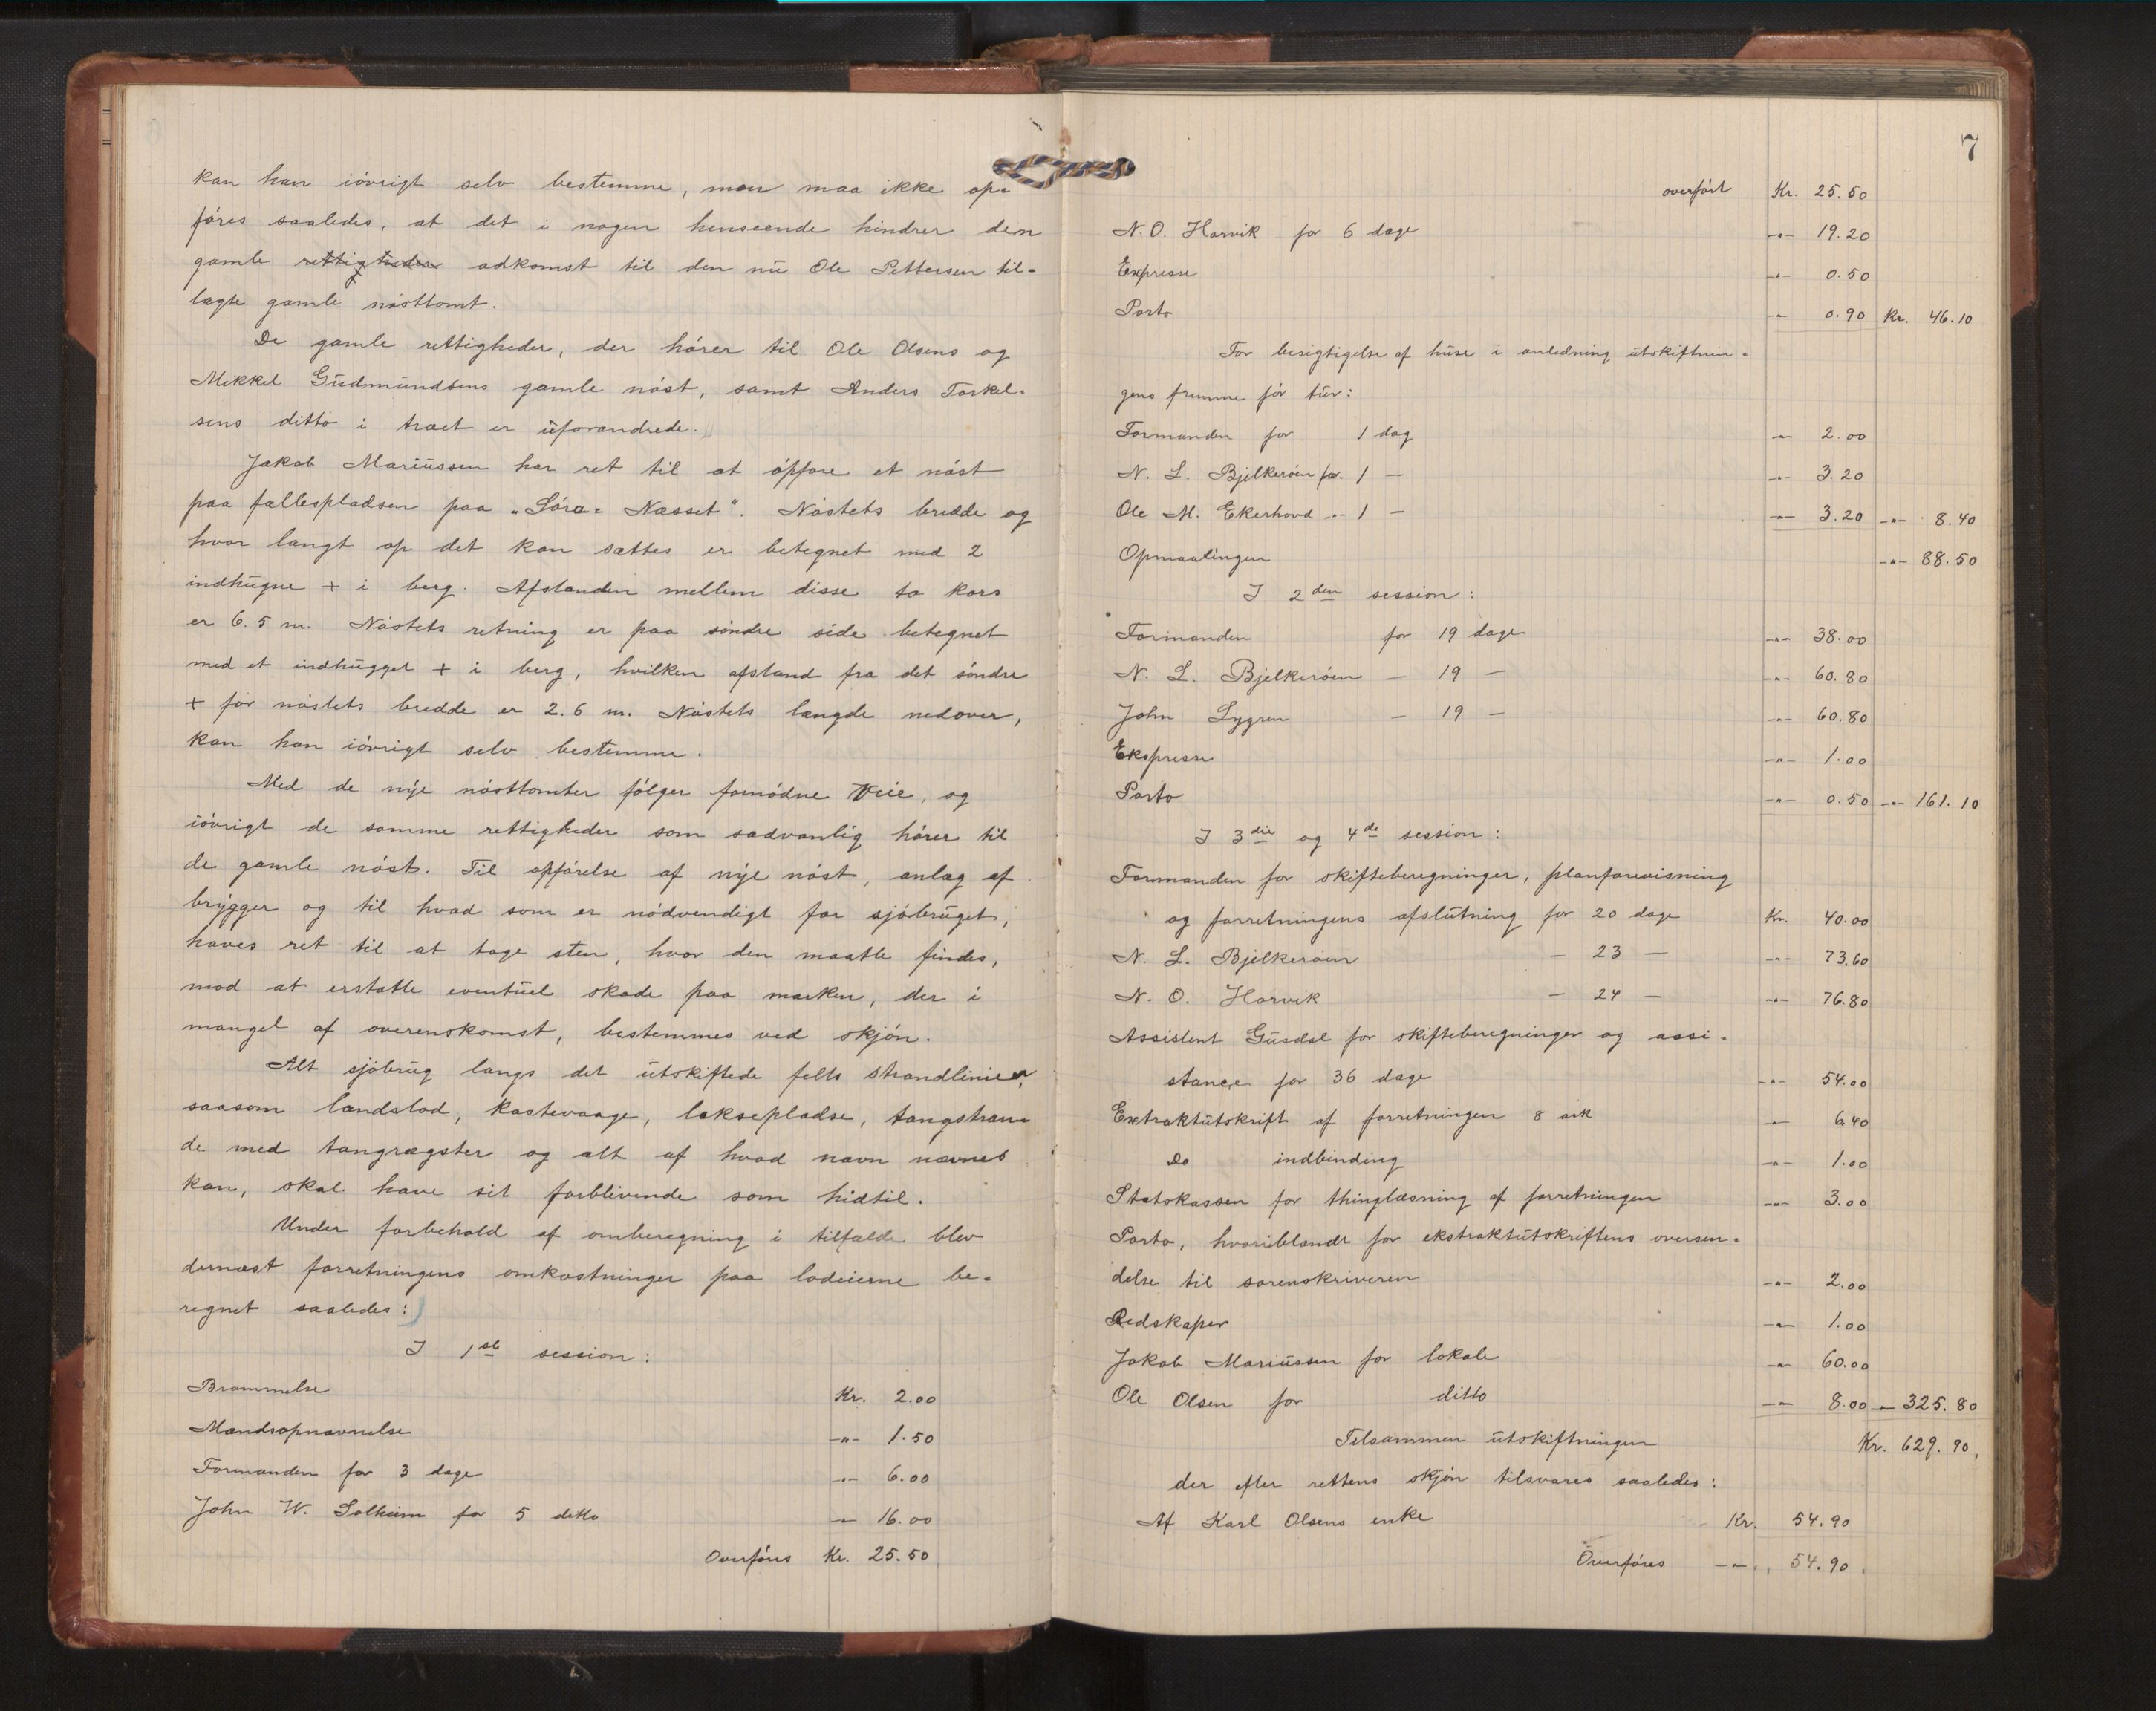 kan han iövrigt selv bestemme, men maa ikke op=
föres saaledes, at det i nogen henseende hindrer den
gamle rettigheder adkomst til den nu Ole Pettersen til=
lagte gamle nösttomt.
De gamle rettigheder, der hörer til Ole Olsens og
Mikkel Gudmundsens gamle nöst, samt Anders Torkel=
sens ditto i træet er uforandrede.
Jakob Mariussen har ret til at opföre et nöst
paa fællespladsen paa "Söra= Næsset". Nöstets bredde og
hvor langt op det kan sættes er betegnet med 2
indhugne + i berg. Afstanden mellem disse to kors
er 6.5 m. Nöstets retning er paa söndre side betegnet
med et indhugget + i berg, hvilken afstand fra det söndre
+ for nöstets bredde er 2.6 m. Nöstets længde nedover,
kan han iövrigt selv bestemme.
Med de nye nösttomter fölger fornödne veie, og
iövrigt de samme rettigheder som sædvanlig hörer til
de gamle nöst. Til opförelse af nye nöst, anlæg af
brygger og til hvad som er nödvendigt for sjöbruget,
haves ret til at tage sten, hvor den maatte findes,
mod at erstatte eventuel skade paa marken, der i
mangel af overenskomst, bestemmes ved skjön.
Alt sjöbrug langs det utskiftede felts strandlinier,
saasom landslod, kastevaage, laksepladse, tangstran=
de med tangrægster og alt af hvad navn nævnes
kan, skal have sit forblivende som hidtil.
Under forbehold af omberegning i tilfælde blev
dernæst forretningens omkostninger paa lodeierne be=
regnet saaledes:
I 1ste session:
Brammelse Kr. 2.00
Mandsopnævnelse -"- 1.50
Formanden for 3 dage -"- 6.00
John W. Solheim for 5 ditto -"- 16.00
Overföres Kr. 25.50
7
overfört Kr. 25.50
N. O. Harvik for 6 dage -"- 19.20
Expresse -"- 0.50
Porto -"- 0.90 Kr. 46.10
For besigtigelse af huse i anledning utskiftnin=
gens fremme för tur:
Formanden for 1 dag -"- 2.00
N. L. Bjelkeröen for 1 — -"- 3.20
Ole M. Ekerhovd -"- 1 — -"- 3.20 -"- 8.40
Opmaalingen -"- 88.50
I 2den session:
Formanden for 19 dage -"- 38.00
N. L. Bjelkeröen — 19 — -"- 60.80
John Lygren — 19 — -"- 60.80
Ekspresse -"- 1.00
Porto -"- 0.50 -"- 161.10
I 3die og 4de session:
Formanden for skifteberegninger, planforevisning
og forretningens afslutning for 20 dage Kr. 40.00
N. L. Bjelkeröen — 23 — -"- 73.60
N. O. Harvik — 24 — -"- 76.80
Assistent Gusdal for skifteberegninger og assi=
stance for 36 dage -"- 54.00
Extraktutskrift af forretningen 8 ark -"- 6.40
Do indbinding -"- 1.00
Statskassen for thinglæsning af forretningen -"- 3.00
Porto, hvoriblandt for ekstraktutskriftens oversen=
delse til sorenskriveren -"- 2.00
Redskaper -"- 1.00
Jakob Mariussen for lokale -"- 60.00
Ole Olsen for ditto -"- 8.00 -"- 325.80
Tilsammen utskiftningen Kr. 629.90,
der efter rettens skjön tilsvares saaledes:
Af Karl Olsens enke Kr. 54.90
Overföres -"- 54.90